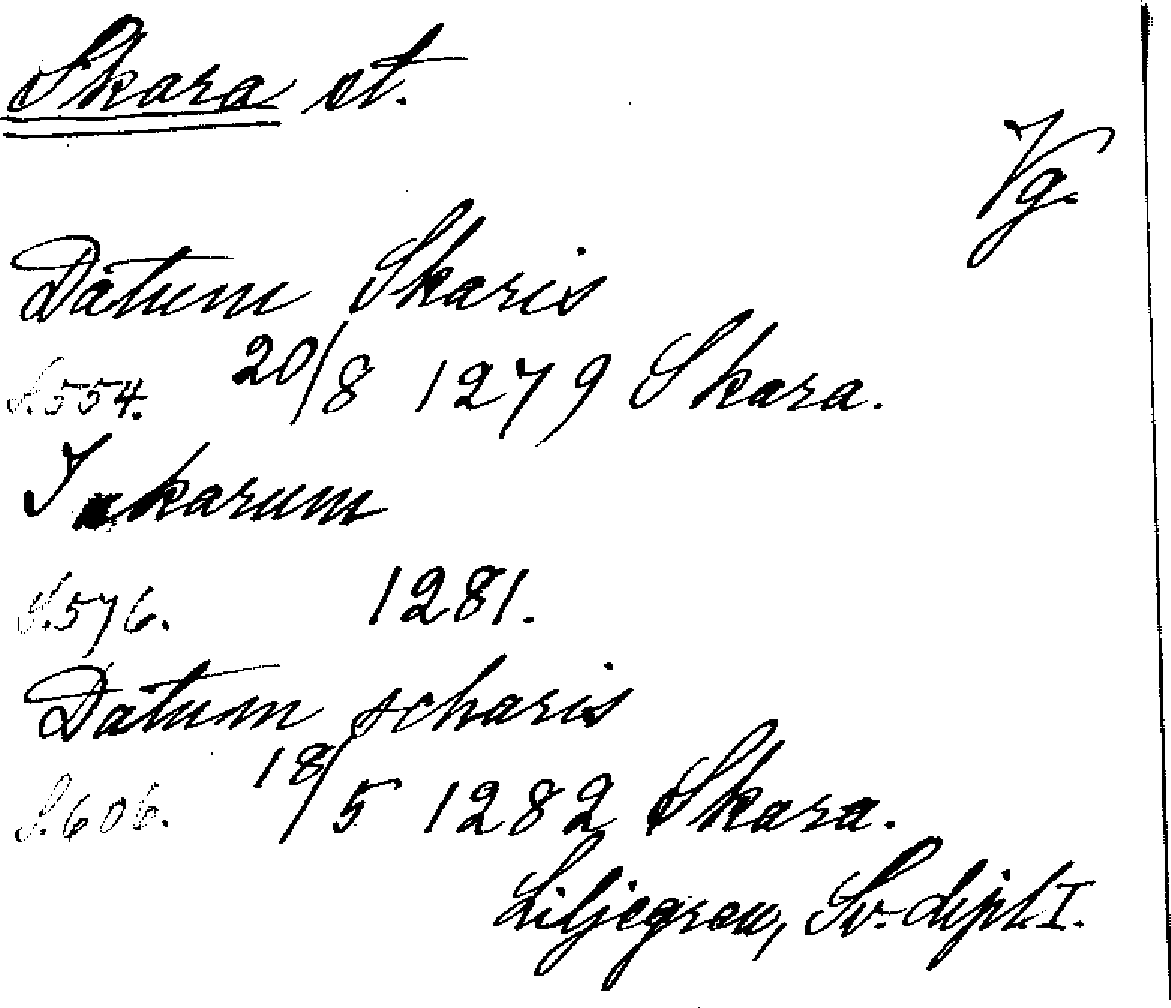 Skara st.
Vg.
Datum Skaris
S. 554. 20/8 1279 Skara.
karum
S. 576. 1281.
Datum scharis
S. 606. 18/5 1282 Skara.
Liljegren, Sv. dipl. I.